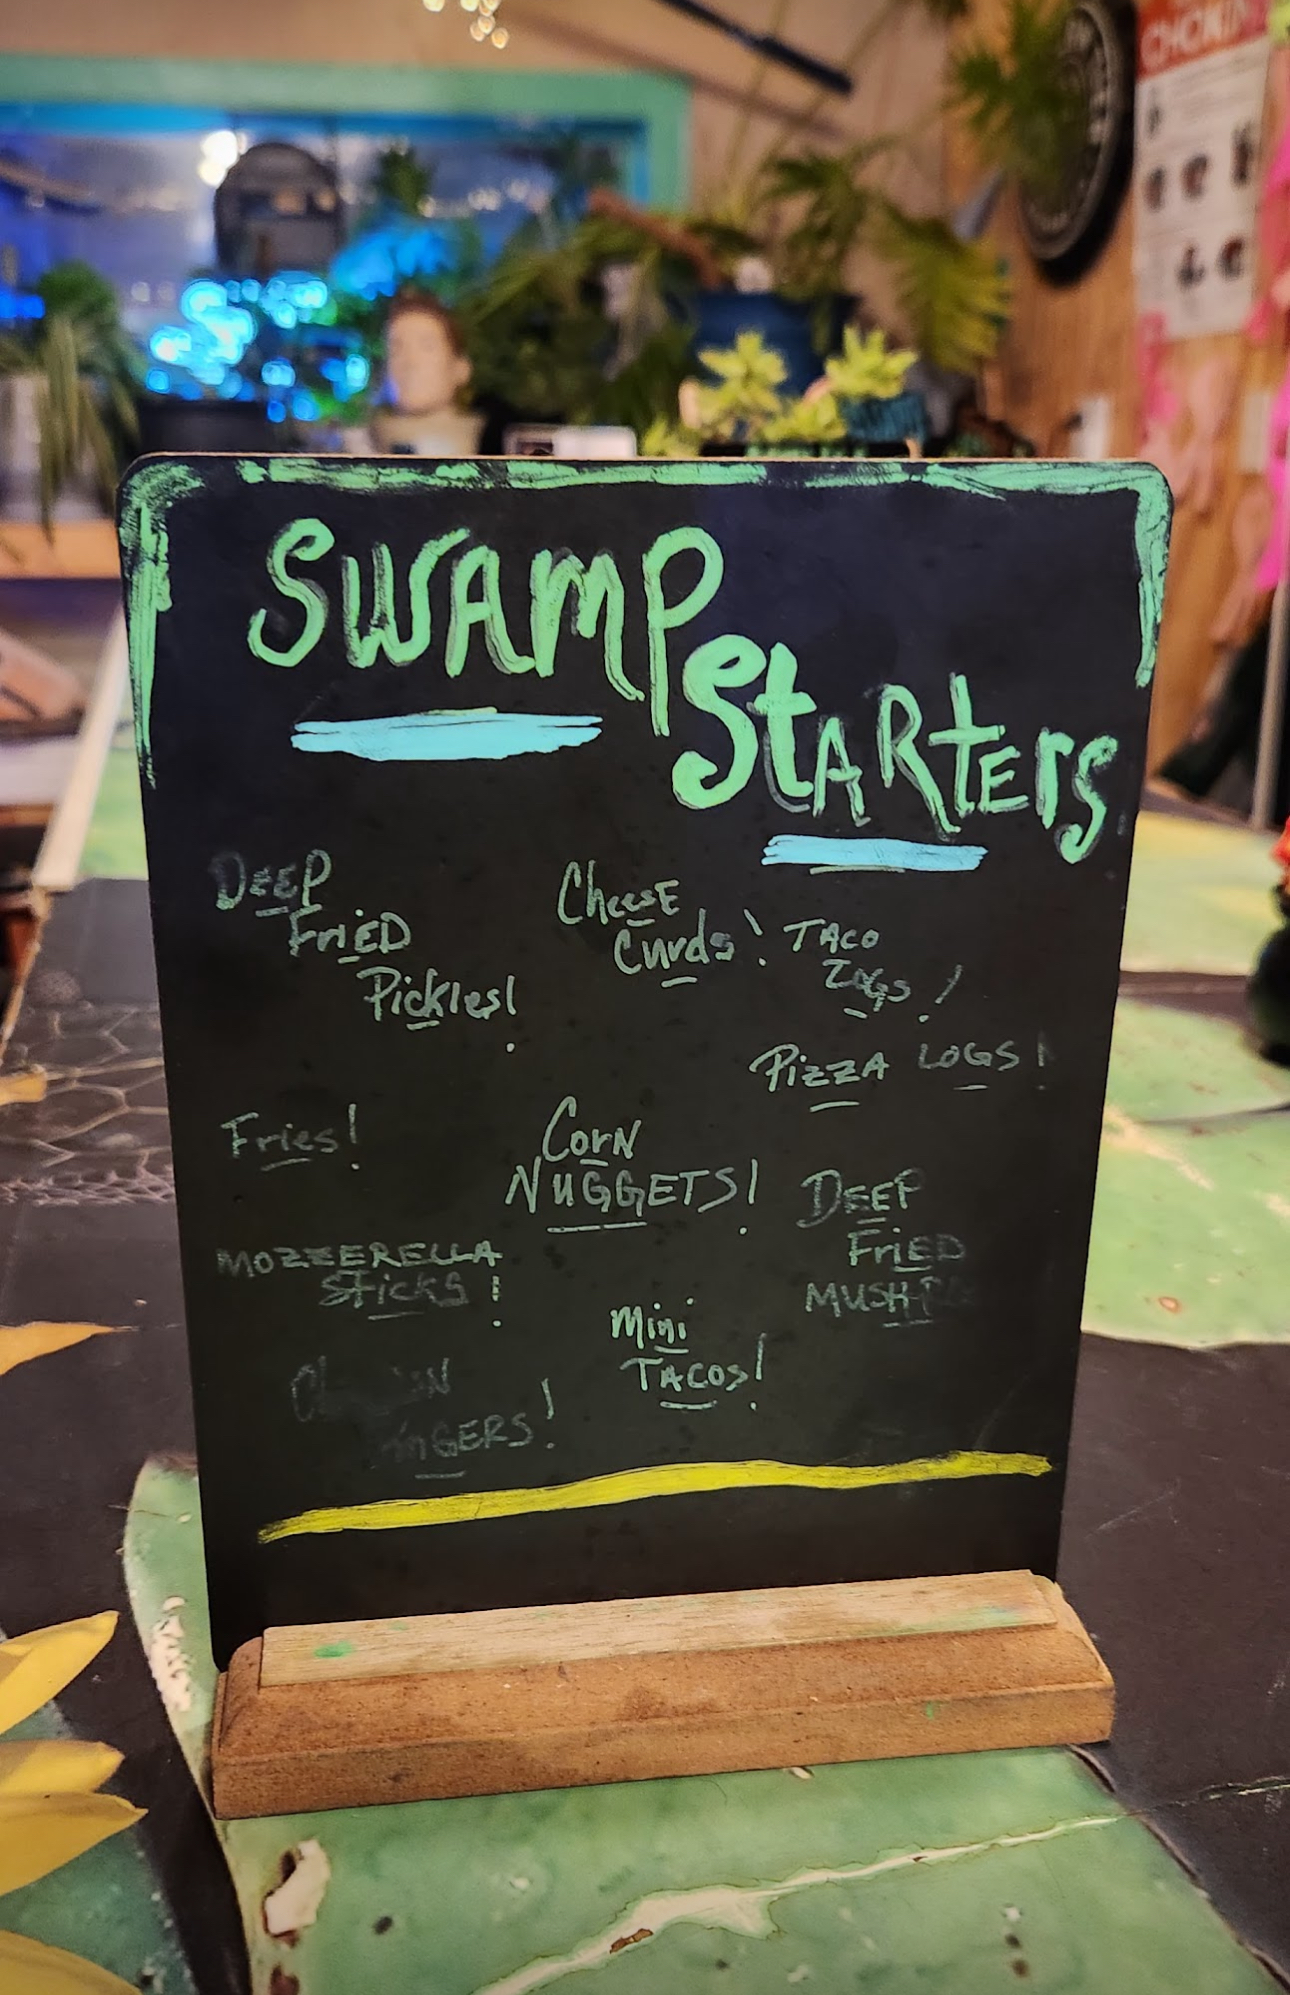 CHOKIN
SWAMP
StARtErs
DEEP
FriED
Pickles!
CheesE
Curds!
TACO
LOGS!
PizzA LOGS!
Fries!
CorN
NUGGETS!
DEEP
FriED
MOZZERELLA
Sticks!
Mini
TACOs!